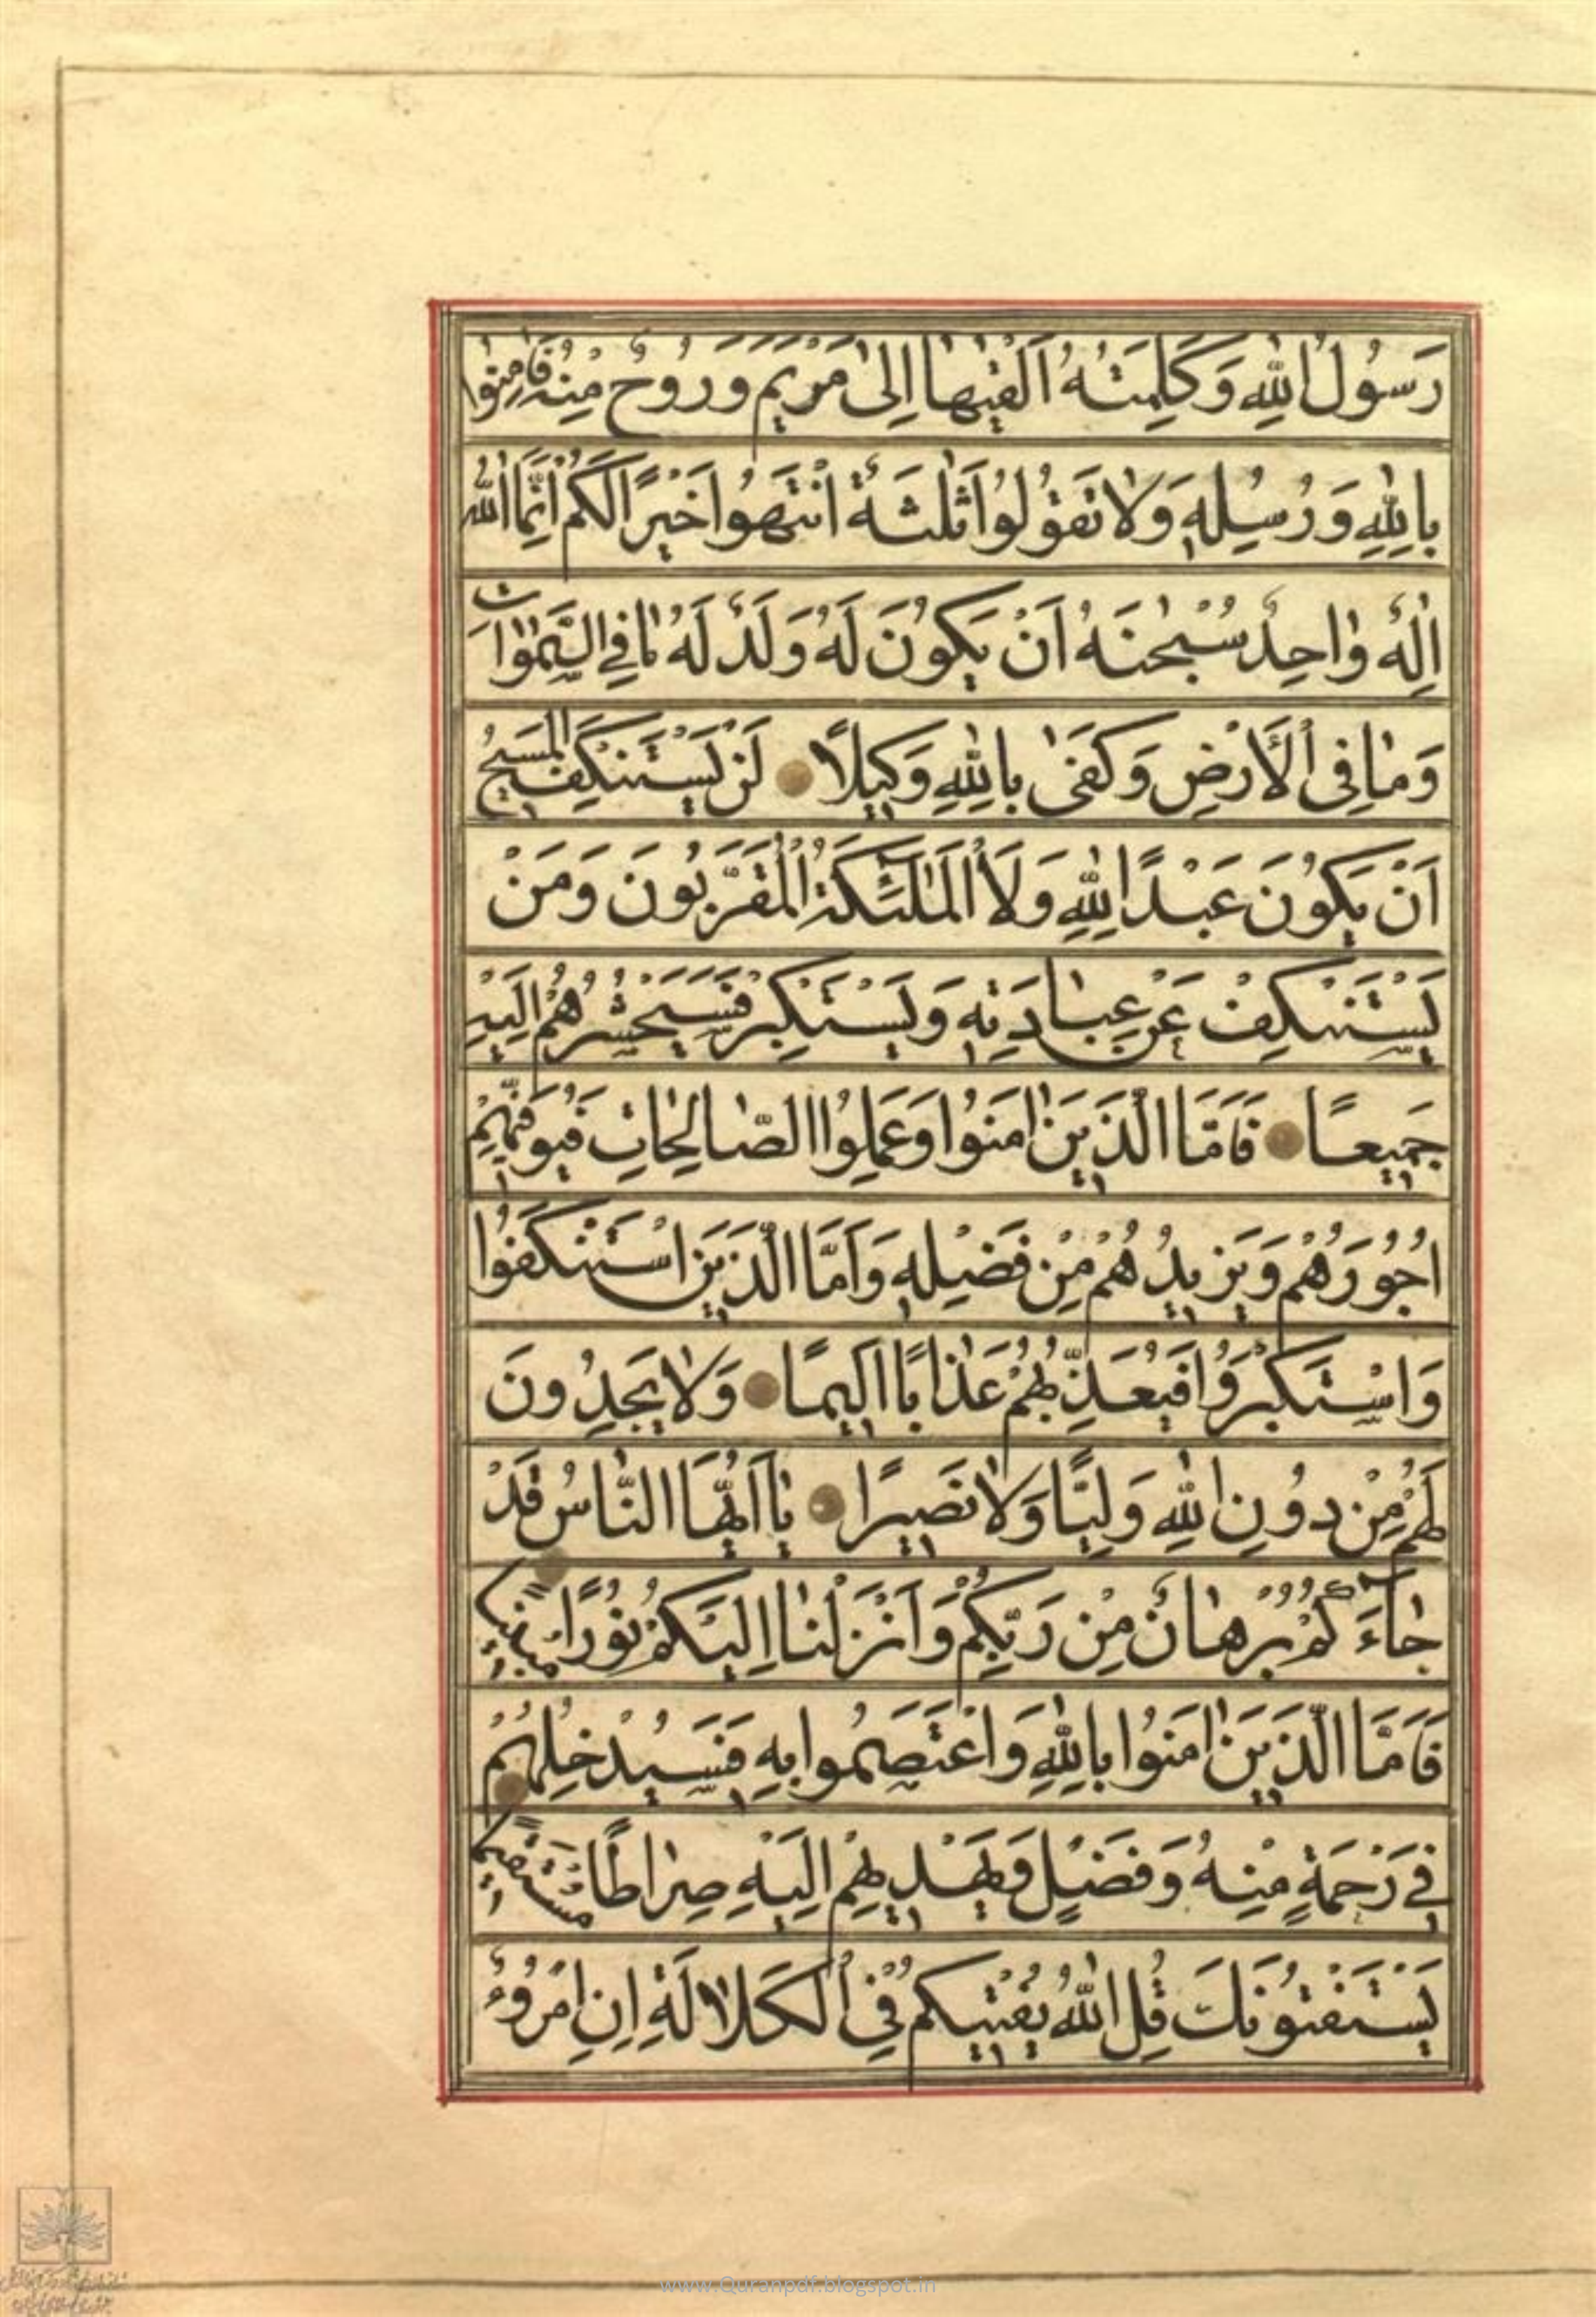 رَسُولُ اللهِ وَكَلِمَتُهُ اَلْقٰيهٰا اِلىٰ مَرْيَمَ وَرُوحٌ مِنْهُ فَاٰمِنُوا
بِاللهِ وَرُسُلِهِ وَلاٰ تَقُولُوا ثَلٰثَةٌ اِنْتَهُوا خَيْرًا لَكُمْ اِنَّمَا اللهُ
اِلٰهٌ وٰاحِدٌ سُبْحٰنَهُ اَنْ يَكُونَ لَهُ وَلَدٌ لَهُ مٰا فِي السَّمٰوٰاتِ
وَمٰا فِى الْأَرْضِ وَكَفىٰ بِاللهِ وَكِيلاً لَنْ يَسْتَنْكِفَ الْمَسِيحُ
اَنْ يَكُونَ عَبْدًا لِلّٰهِ وَلاَ الْمَلٰئِكَةُ الْمُقَرَّبُونَ وَمَنْ
يَسْتَنْكِفْ عَنْ عِبٰادَتِهِ وَيَسْتَكْبِرْ فَسَيَحْشُرُهُمْ اِلَيْهِ
جَمِيعًا فَاَمَّا الَّذِينَ اٰمَنُوا وَعَمِلُوا الصّٰالِحٰاتِ فَيُوَفِّيهِمْ
اُجُورَهُمْ وَيَزِيدُهُمْ مِنْ فَضْلِهِ وَاَمَّا الَّذِينَ اسْتَنْكَفُوا
وَاسْتَكْبَرُوا فَيُعَذِّبُهُمْ عَذٰابًا اَلِيمًا وَلاٰ يَجِدُونَ
لَهُمْ مِنْ دُونِ اللهِ وَلِيًّا وَلاٰ نَصِيرًا يٰا اَيُّهَا النّٰاسُ قَدْ
جٰاءَكُمْ بُرْهٰانٌ مِنْ رَبِّكُمْ وَاَنْزَلْنٰا اِلَيْكُمْ نُورًا مُبِينًا
فَاَمَّا الَّذِينَ اٰمَنُوا بِاللهِ وَاعْتَصَمُوا بِهِ فَسَيُدْخِلُهُمْ
فِي رَحْمَةٍ مِنْهُ وَفَضْلٍ وَيَهْدِيهِمْ اِلَيْهِ صِرٰاطًا مُسْتَقِيمًا
يَسْتَفْتُونَكَ قُلِ اللهُ يُفْتِيكُمْ فِى الْكَلاٰلَةِ اِنِ امْرُؤٌ
www.Quranpdf.blogspot.in